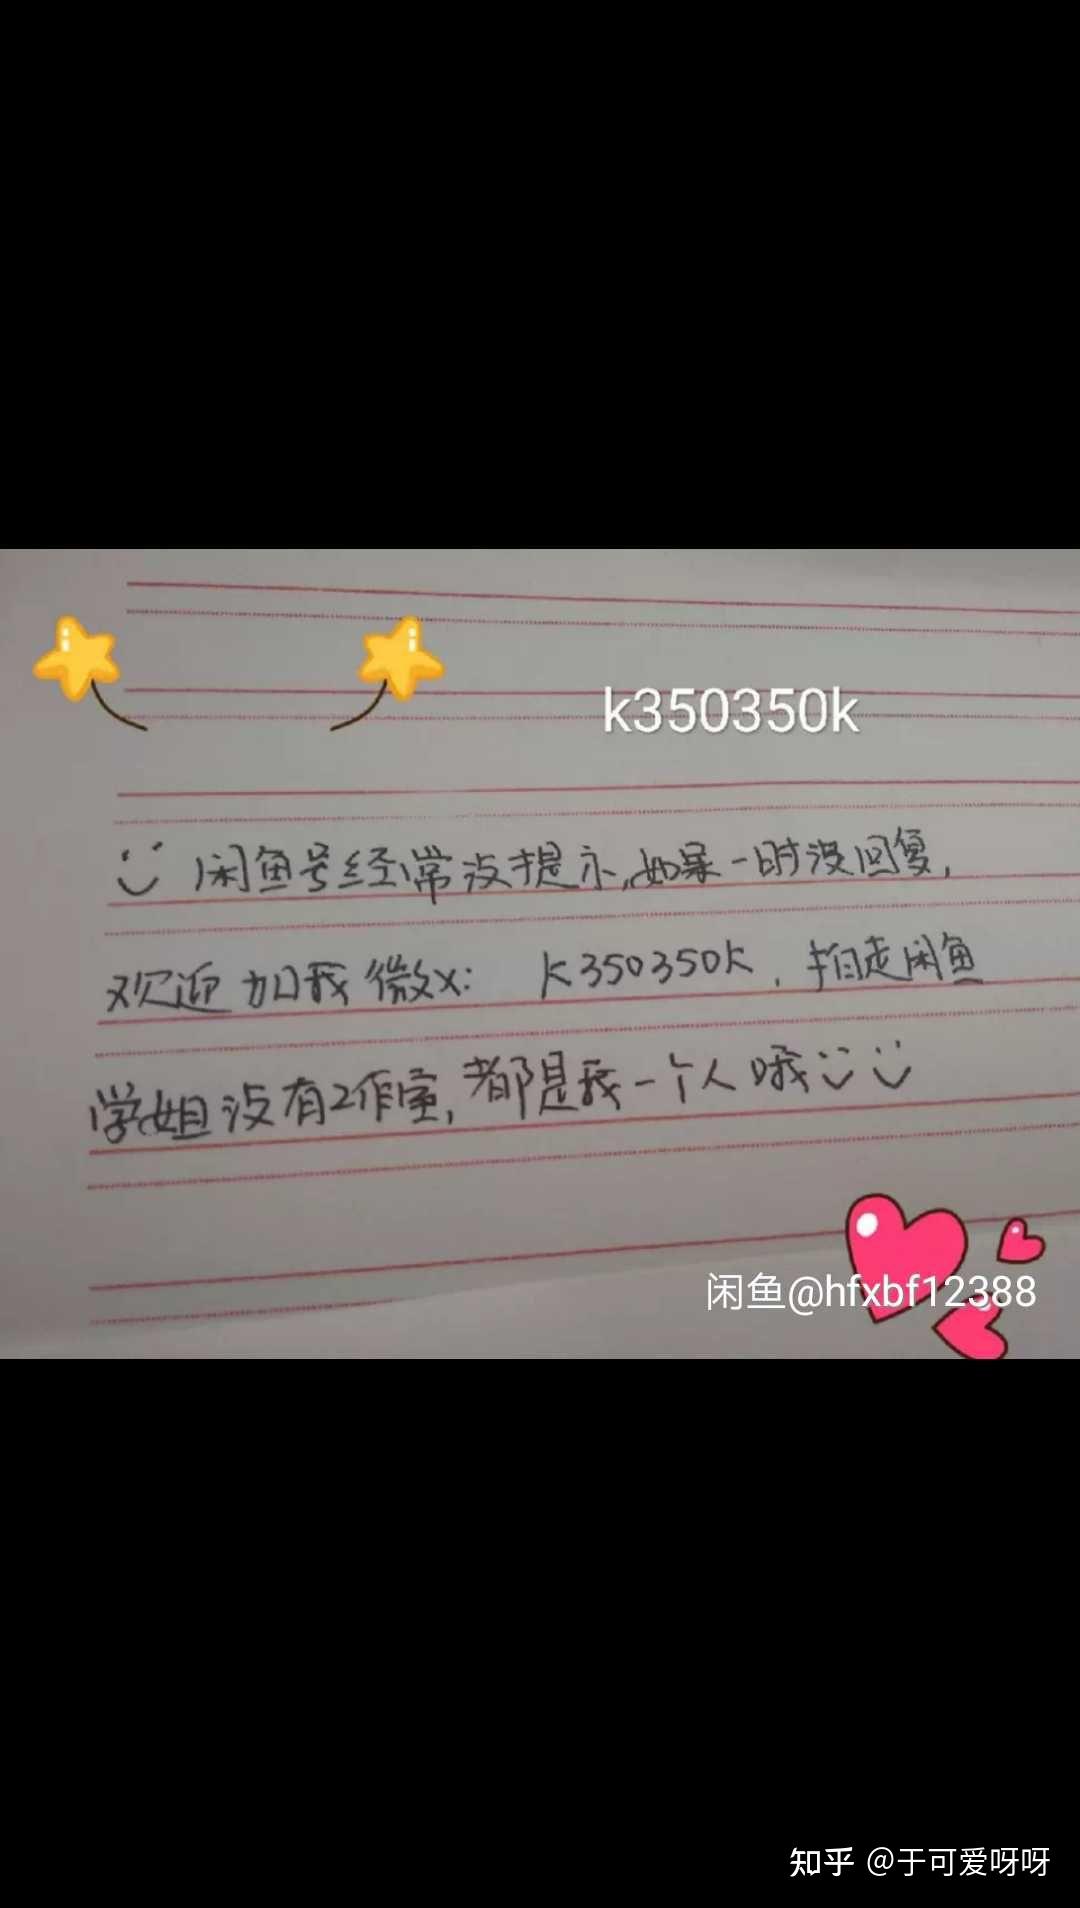 k350350k
闲鱼号经常没提示,如果一时没回复,
欢迎加我微x: k350350k, 拍走闲鱼
学姐没有工作室,都是我一个人哦
闲鱼@hfxbf12388
知乎 @于可爱呀呀